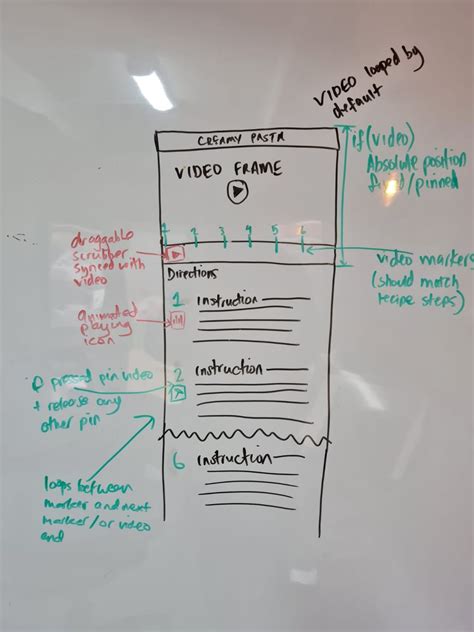 VIDEO looped by
default
CREAMY PASTA
if(video)
Absolute position
fixed/pinned
VIDEO FRAME
1 2 3 4 5 6
draggable
scrubber
synced with
video
video markers
(should match
recipe steps)
Directions
1 instruction
animated
playing
icon
2 instruction
if pressed pin video
+ release any
other pin
6 instruction
loops between
marker and next
marker/or video
end